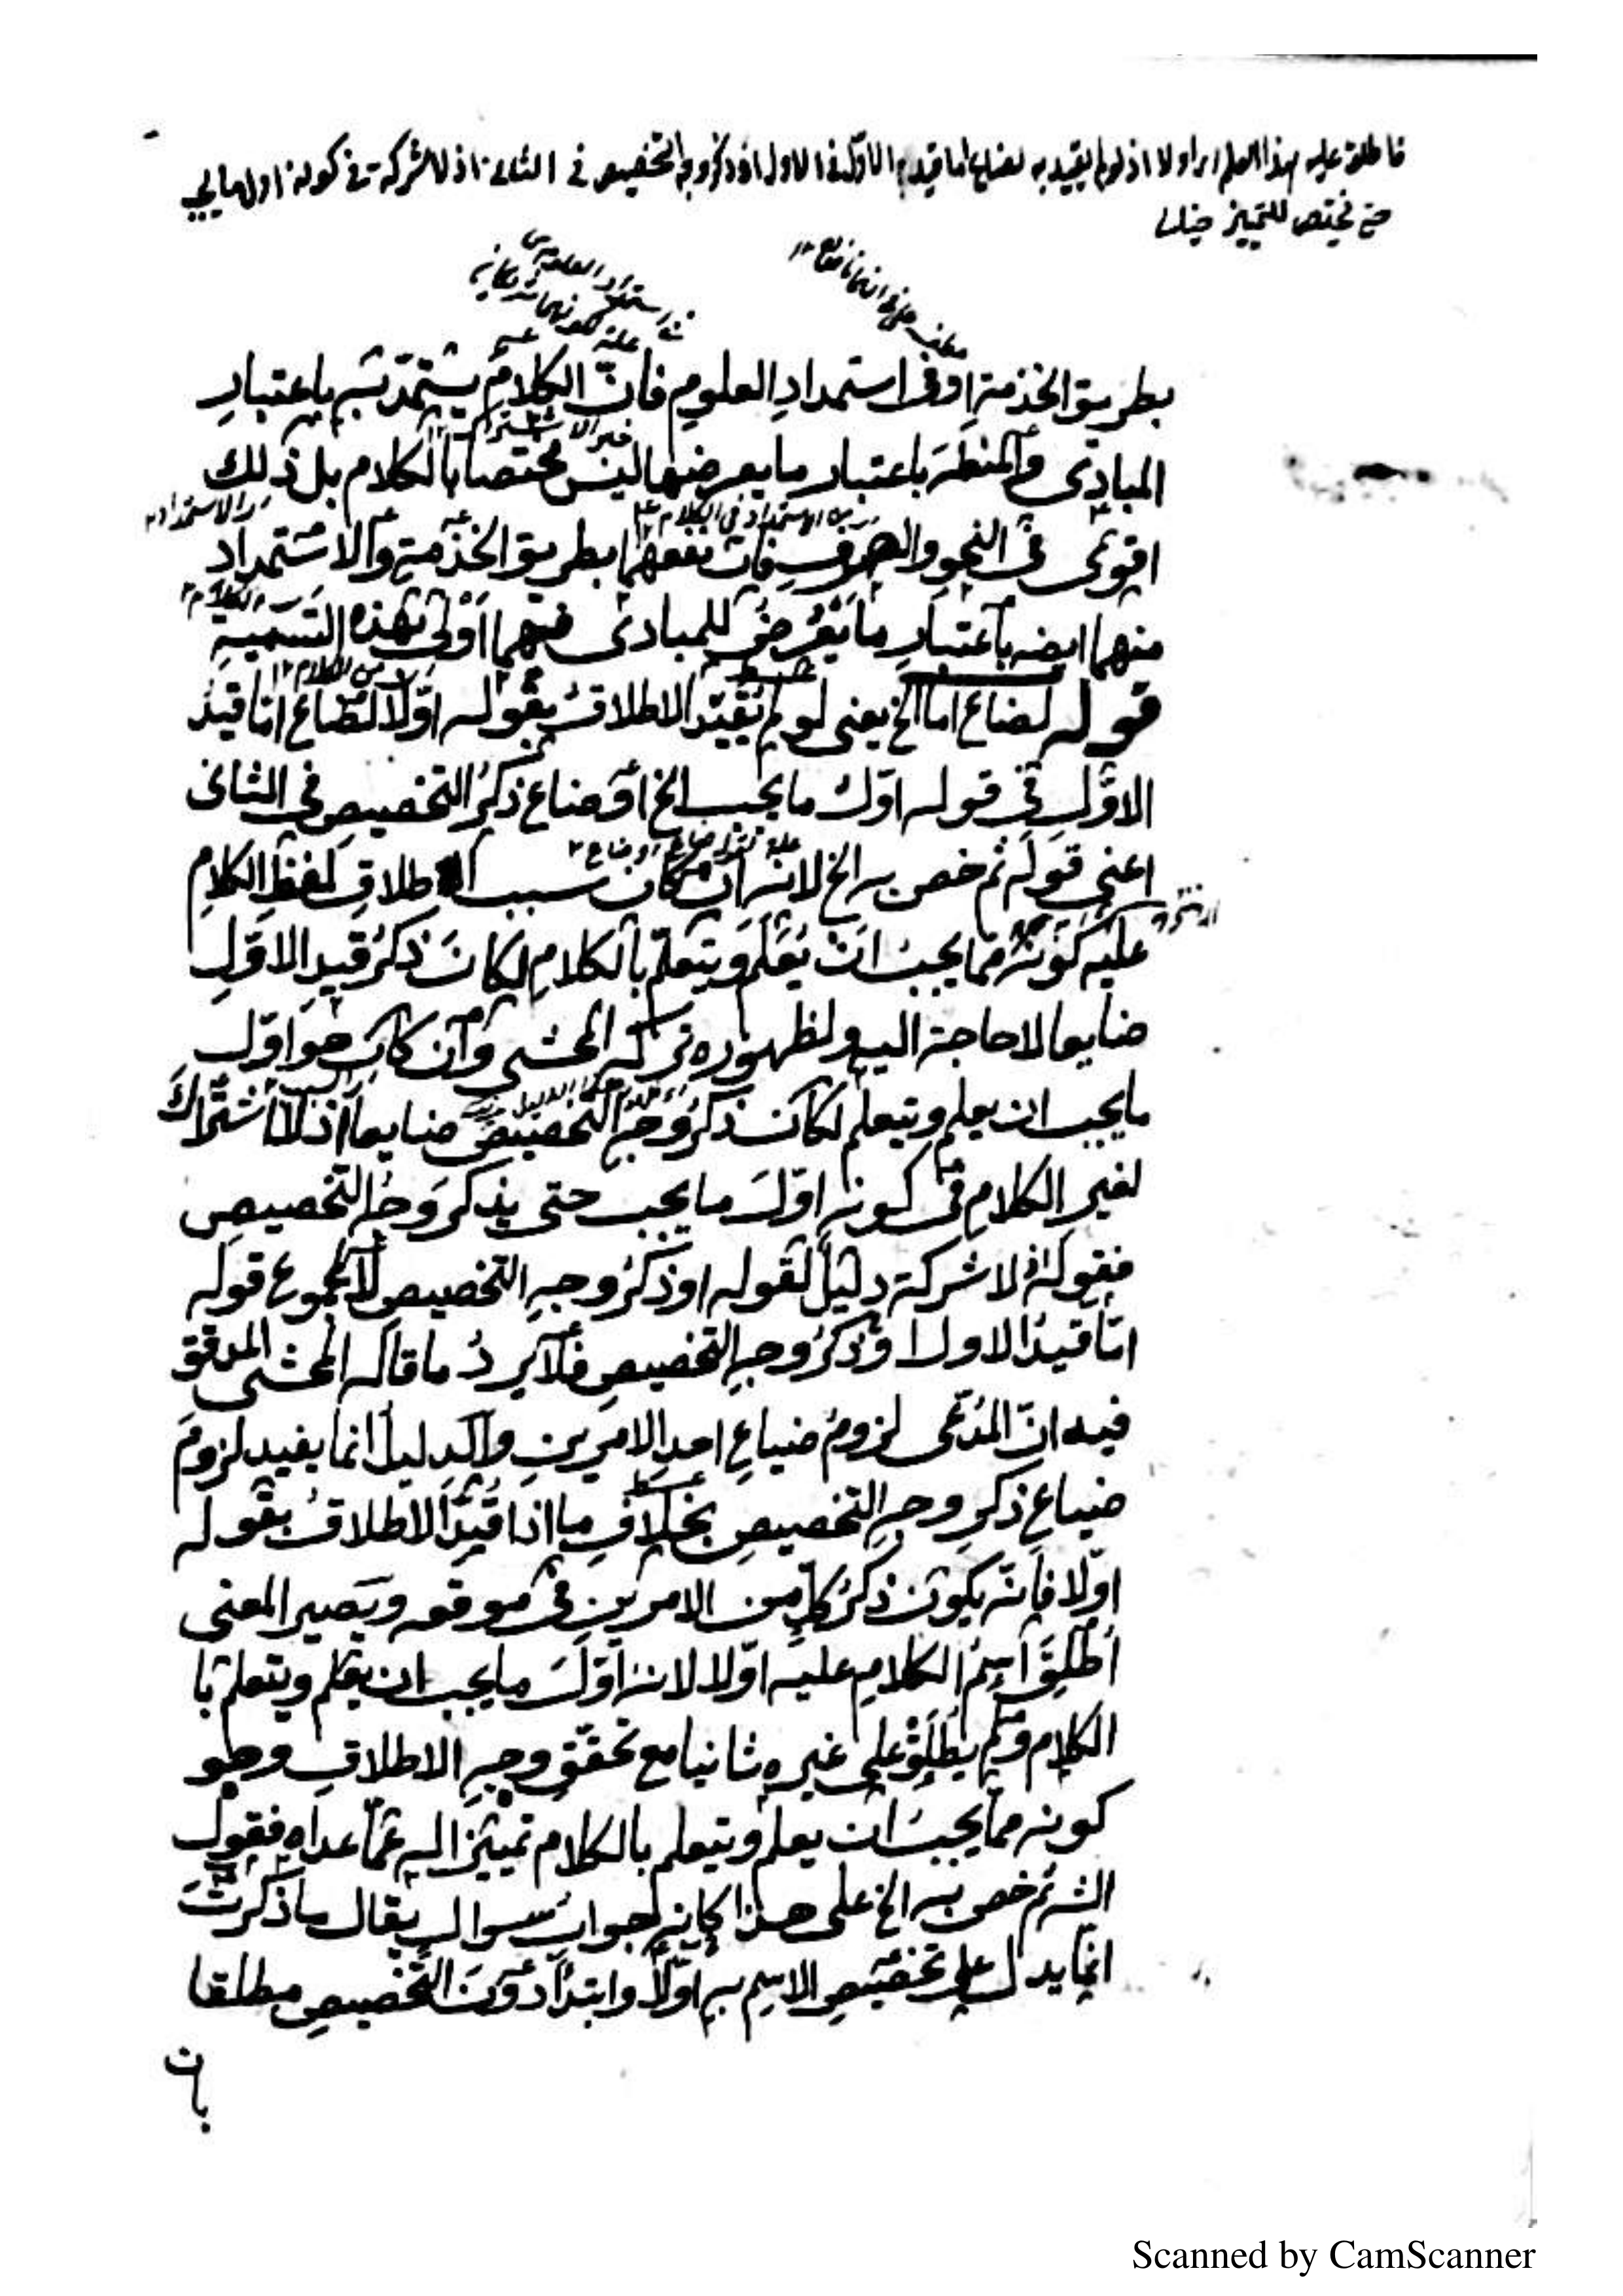 فاطلق عليه هذا العلم اولا اذ لو لم يقيد به لضاع اما قيد الاول في الاول او ذكر وجه التخصيص في الثاني اذ لا شركة في كونه اول ما يجب
حتى يختص للتمييز
بطريق الخدمة او في استمداد العلوم فانّ الكلامَ يستمدّ به باعتبارِ
المبادى والمنطق باعتبار ما يعرضها ليس مختصا بالكلام بل ذلك
اقوى فى النحو والصرف فان نفعهما بطريق الخدمة والاستمداد
منهما ايضا باعتبار ما يعرض للمبادى فهما اولى بهذه التسمية
قوله لضاع اما الخ يعنى لو لم يُقيّد الاطلاقُ بقوله اوّلا لضاع اما قيد
الاوّل فى قوله اوّل ما يجب الخ او ضاع ذكرُ التخصيصِ فى الثانى
اعنى قوله ثم خص به الخ لانه ان كان سبب اطلاقِ لفظِ الكلامِ
عليه كونه مما يجبُ ان يُعلَم ويتعلم بالكلامِ لكانَ ذكرُ قيدِ الاوّلِ
ضايعا لا حاجة اليه ولظهوره تركه المحشى وان كان هو اوّل
ما يجب ان يعلم ويتعلم لكان ذكرُ وجهِ التخصيص ضايعا اذ لا اشتراكَ
لغيرِ الكلامِ فى كونه اوّلَ ما يجب حتى يذكرَ وجهُ التخصيصِ
فقوله اذ لا شركة دليل لقوله او ذكرُ وجهِ التخصيصِ لا لمجموع قوله
امّا قيدُ الاول او ذكرُ وجهِ التخصيصِ فلا يردُ ما قاله المحشى المدقق
فيه انّ المدّعى لزومُ ضياعِ احدِ الامرينِ والدليلَ انما يفيد لزومَ
ضياعِ ذكرِ وجهِ التخصيصِ بخلافِ ما اذا قُيّدَ الاطلاقُ بقوله
اولا فانّه يكون ذكرُ كلٍّ من الامرين فى موقعه ويصير المعنى
اُطلِقَ اسمُ الكلامِ عليه اوّلا لانه اوّلَ ما يجب ان يعلم ويتعلم با
الكلام ولم يطلَق على غيره ثانيا مع تحقّقِ وجهِ الاطلاقِ وهو
كونه مما يجبُ ان يعلم ويتعلم بالكلام تمييزا له عمّا عداه فقول
الش ثم خص به الخ على هذا كانه جواب سوال يقال ما ذكرتَ
انما يدل على تخصيصِ الاسمِ به اوّلا وابتداءً دونَ التخصيصِ مطلقا
بان
Scanned by CamScanner